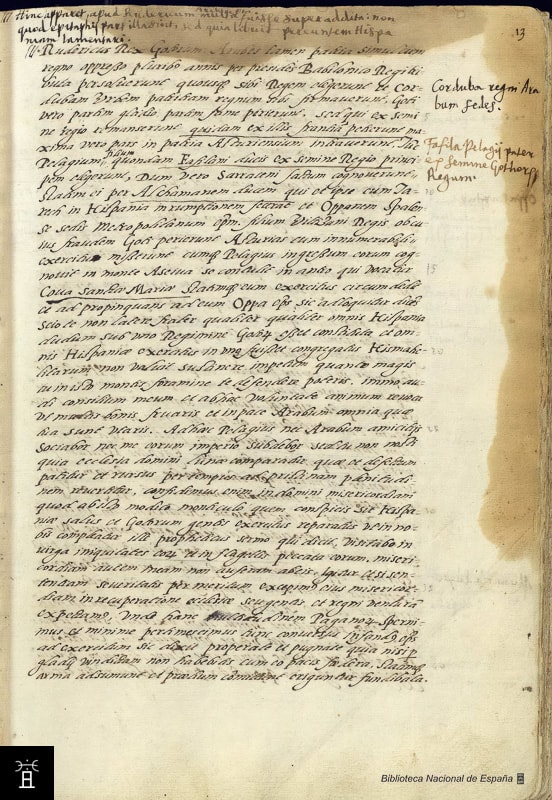 Hinc apparet, apud
quod epitaphij pars illa
niam lamentari.
13
Rudericus Rex Arabes tamen patria simul cum
regno oppresso pluribus annis per presides Babilonia Regi tri
buta persolverunt quousq; sibi Regem elegerunt et Cor
dubam Urbem patritiam regnum sibi firmaverunt. Goti
vero partim gladio partim fame perierunt. Sed qui ex semi
ne regio remanserunt quidam ex illis Franciam petierunt ma
xima vero pars in patria Asturiensium intraverunt, sibiq;
Pelagium filium quondam Fafilani ducis ex semine Regio princi
pem elegerunt. Dum vero Sarraceni factum cognoverunt
statim ei per Alchamanem ducem qui et ipse cum Ta
rech in Hispania irruptionem fecerat et Oppanem Ispalen
se sedis Metropolitanum epm. filium Vitizani Regis ob cu
ius fraudem Goti perierunt Asturias cum innumerabili
exercitu miserunt cumq; Pelagius ingressum eorum cog
novit in monte Aseuva se contulit in antro qui vocatur
Cova Sanctæ Mariæ statimq; eum exercitus circumdedit
et ad propinquans ad eum Oppa eps sic alloquitur dices
scio te non latere frater qualiter omnis Hispania
dudum sub uno Regimine Gotorum esset et om
nis Hispaniae exercitus in uno fuisset congregatus Hismahe
litarum non valuit sustinere impetum quanto magis
tu in isto montis foramine te defendere poteris. immo au
di consilium meum et ab hac voluntate animum revoca
ut multis bonis fruaris et in pace Arabum omnia quae
tua sunt utaris. Ad haec Pelagius nec Arabum amicitijs
sociabor nec me eorum imperio subdebor sed tu non nosti
quia ecclesia domini lunae comparatur quae et defectum
patitur et rursus per tempus ad pristinam plenitudi
nem revertitur, confidimus enim in domini misericordiam
quod ab isto modico monticulo quem conspicis sit Hispa
niae salus et Gotorum gentis exercitus reparatus ut in no
bis compleatur ille propheticus sermo qui dicit. Visitabo in
virga iniquitates eorum et in flagellis peccata eorum, miseri
cordiam autem meam non auferam ab eis. Igitur et si sen
tentiam severitatis per meritum excepimus eius misericor
diam in recuperatione ecclesiae seu gentis et regni venturam
expectamus. Unde hanc multitudinem Paganorum sperni
mus et minime pertimescimus tunc conversus infandus eps
ad exercitum sic dixit properate et pugnate quia nisi p
gladij vindictam non habebitis cum eo pacis foedera. Statimq;
arma adsumunt et praelium committunt eriguntur fundibula.
Corduba regni Ara
bum sedes.
Fafila Pelagij pater
ex semine Gothorum
Regum.
10
15
20
Biblioteca Nacional de España